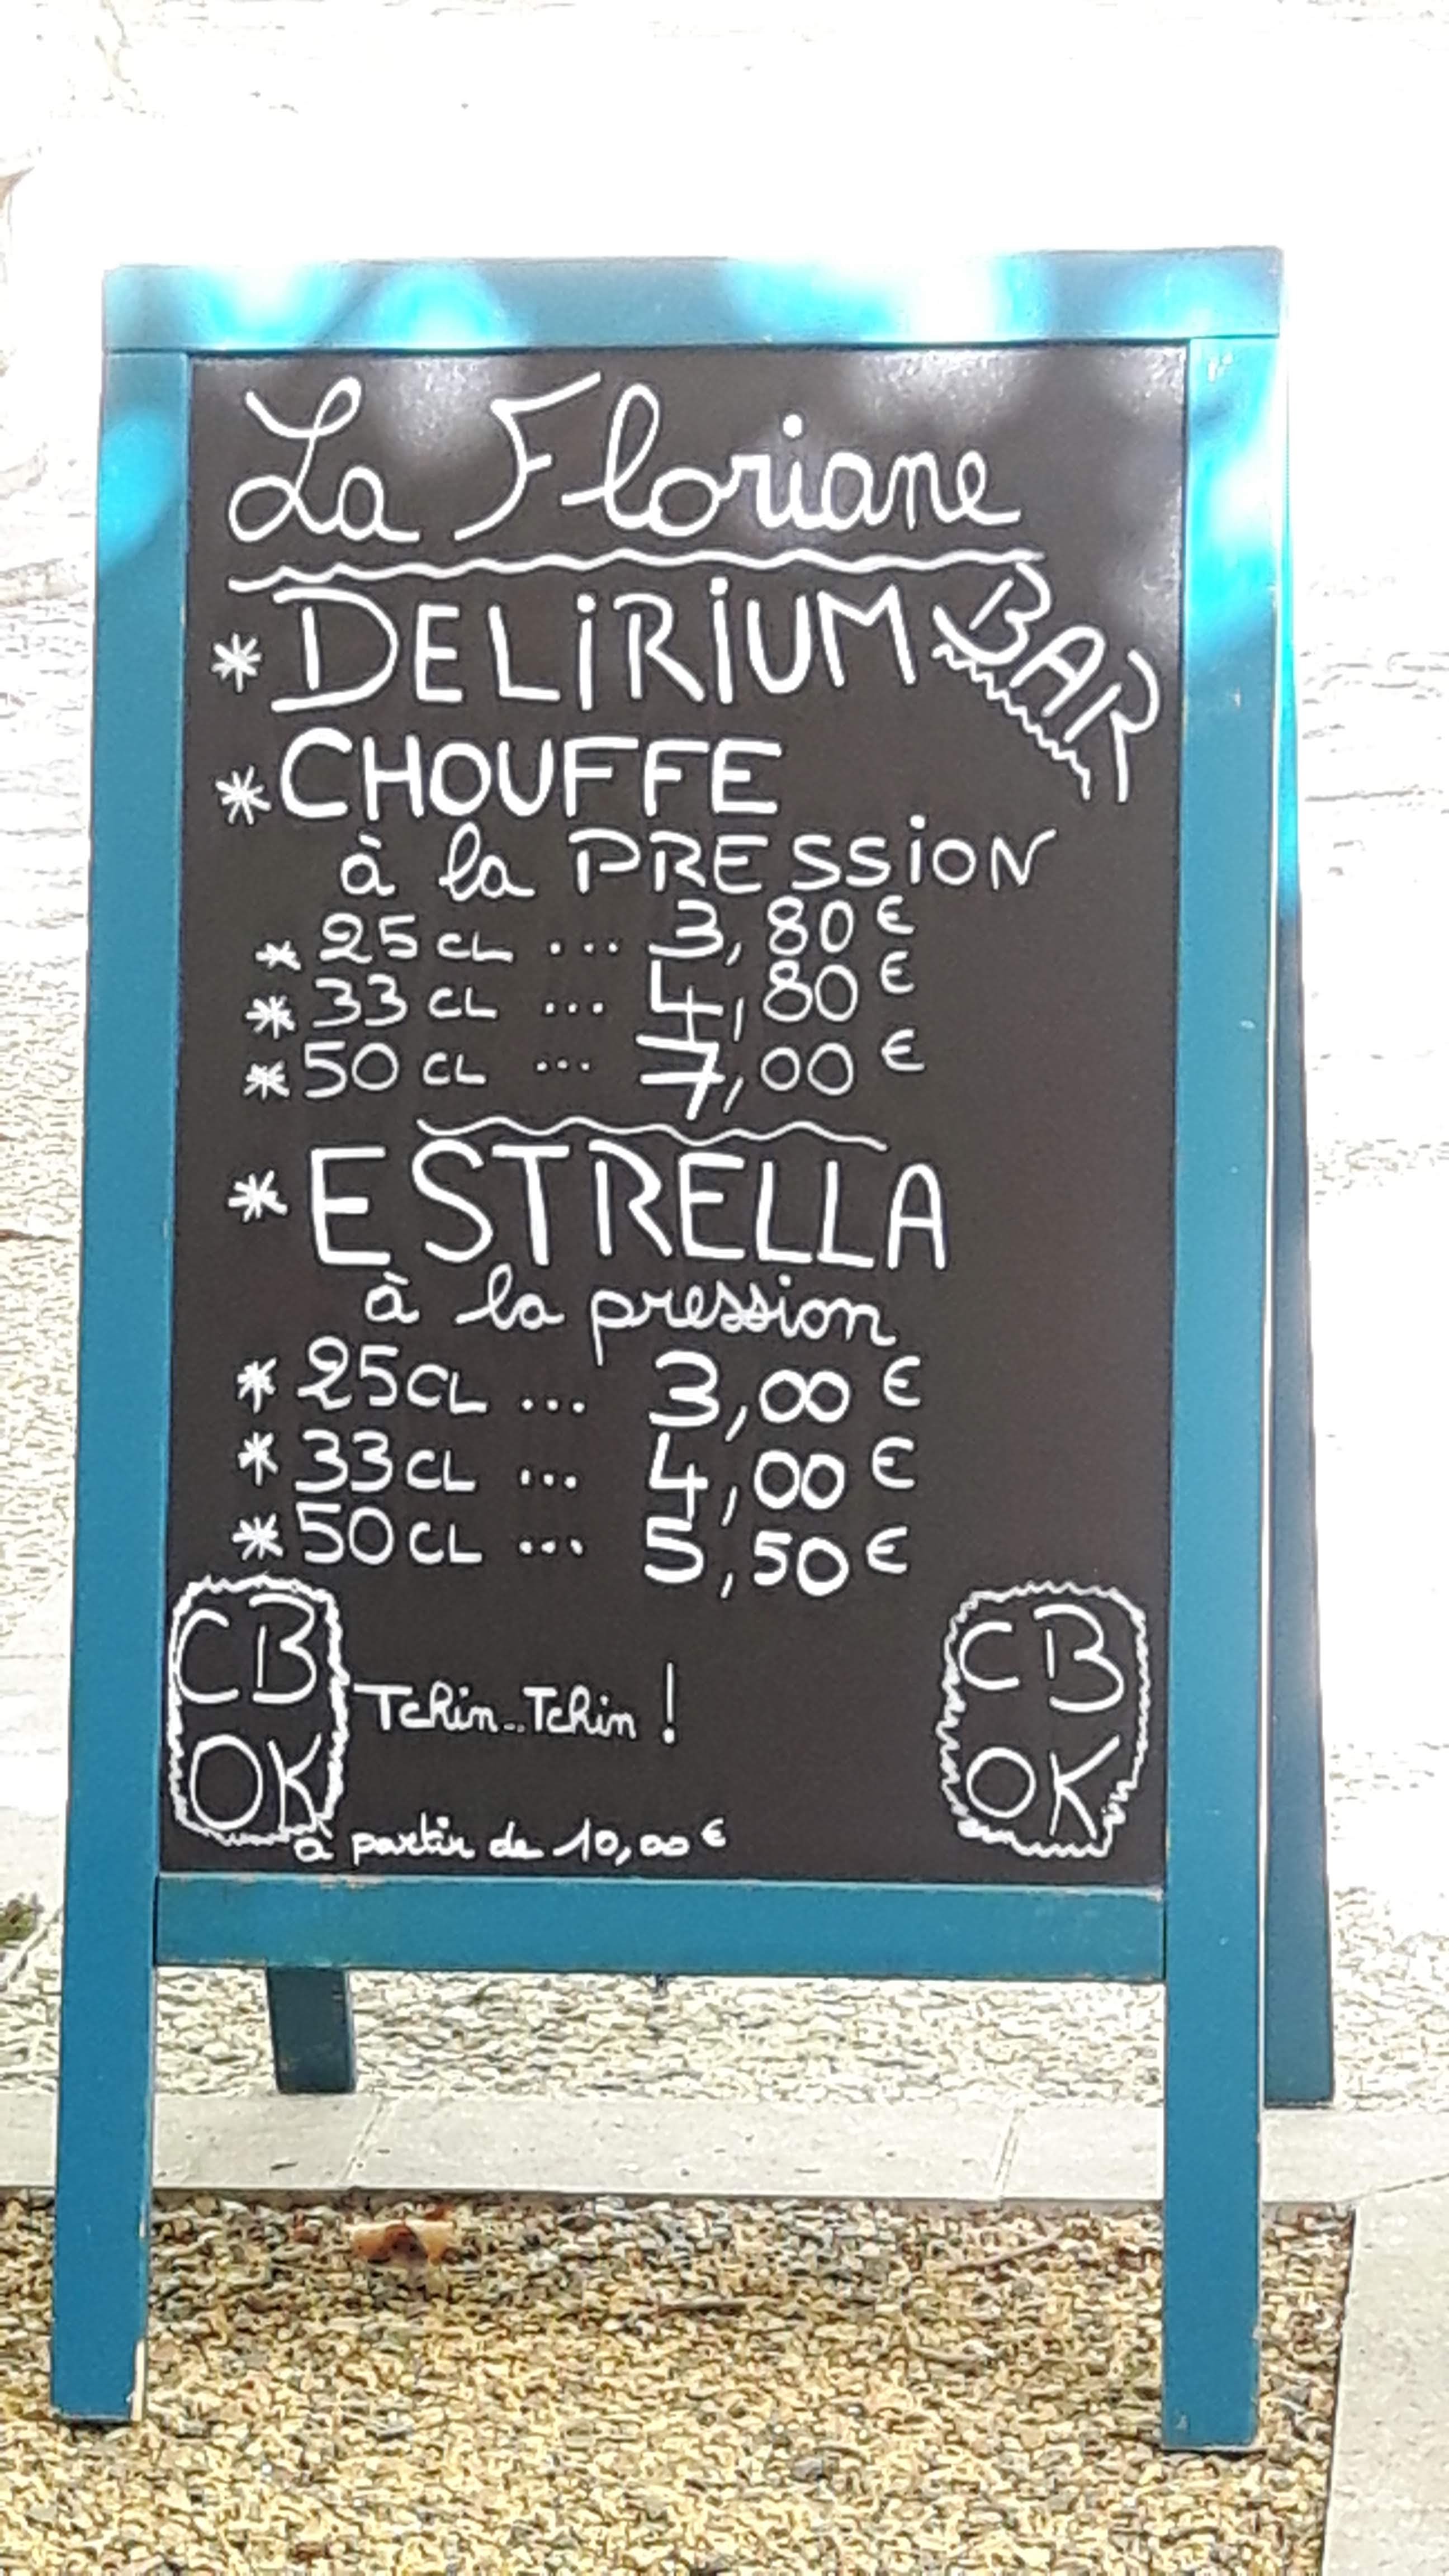 La Floriane
BAR
* DELiRiUM
* CHOUFFE
à la PRESSiON
* 25 CL ... 3,80 €
* 33 CL ... 4,80 €
* 50 CL ... 7,00 €
* ESTRELLA
à la pression
* 25 CL ... 3,00 €
* 33 CL ... 4,00 €
* 50 CL ... 5,50 €
CB OK
Tchin..Tchin !
CB OK
à partir de 10,00 €